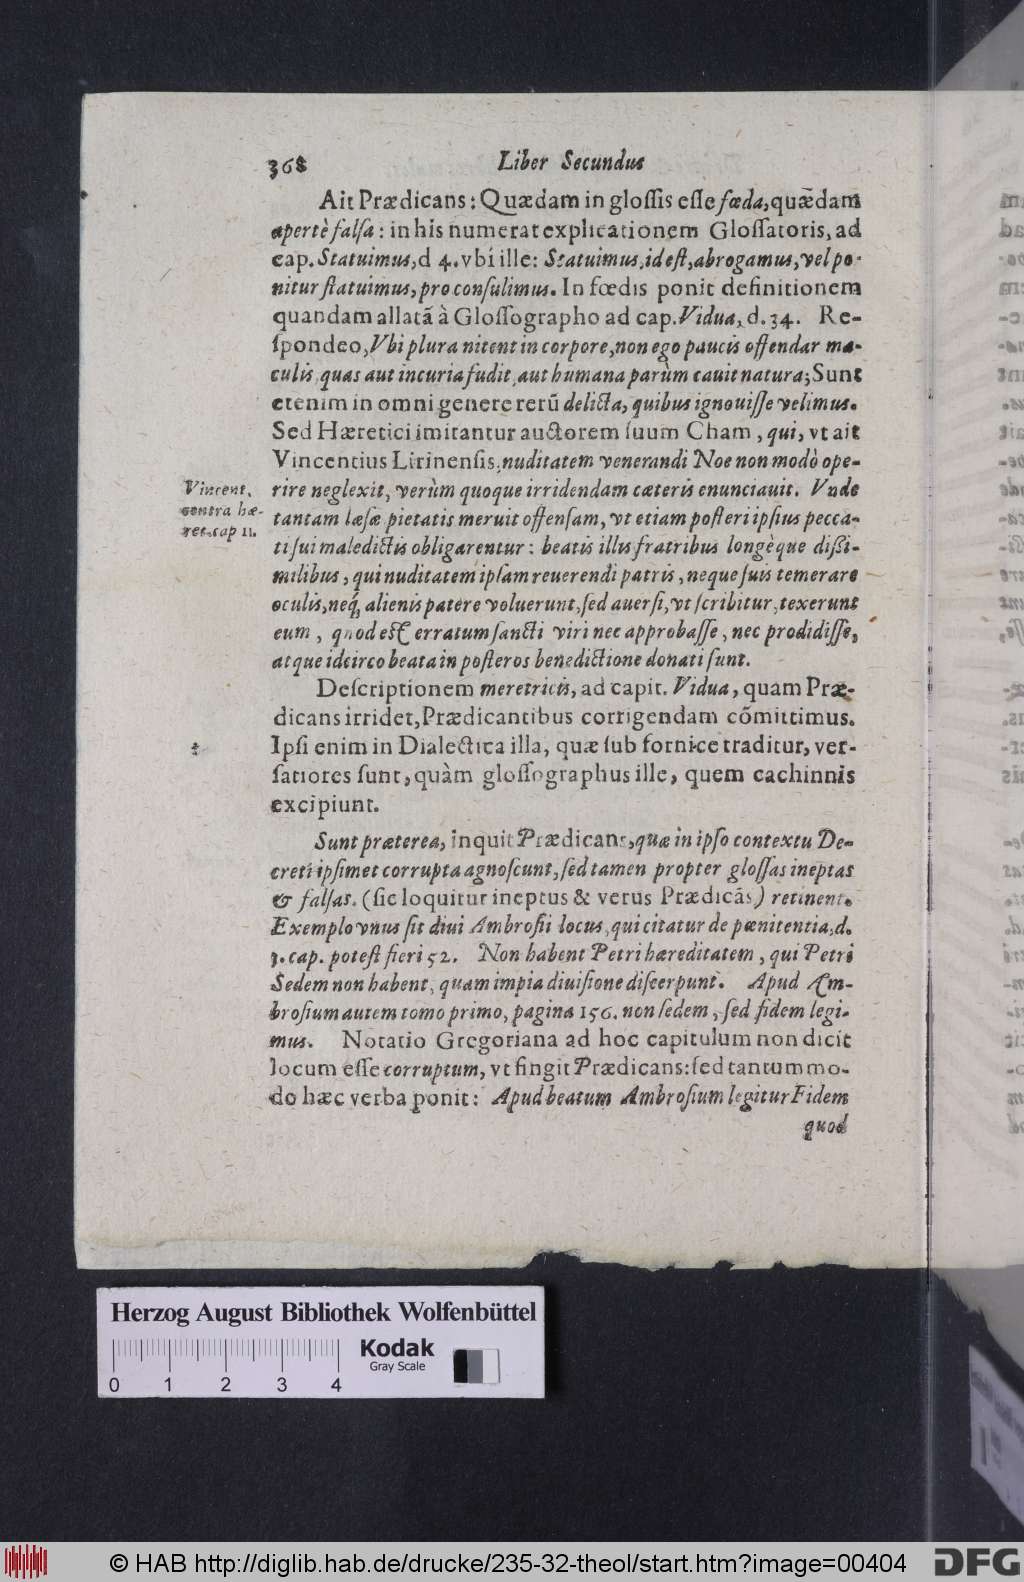 368 Liber Secundus
Ait Prædicans: Quædam in glossis esse fœda, quædam
apertè falsa: in his numerat explicationem Glossatoris, ad
cap. Statuimus, d 4. vbi ille: Statuimus, id est, abrogamus, vel po-
nitur statuimus, pro consulimus. In fœdis ponit definitionem
quandam allatã à Glossographo ad cap. Vidua, d. 34. Re-
spondeo, Vbi plura nitent in corpore, non ego paucis offendar ma-
culis, quas aut incuria fudit, aut humana parùm cauit natura; Sunt
etenim in omni genere rerũ delicta, quibus ignouisse velimus.
Sed Hæretici imitantur auctorem suum Cham, qui, vt ait
Vincentius Lirinensis, nuditatem venerandi Noe non modò ope-
rire neglexit, verùm quoque irridendam cæteris enunciauit. Vnde
Vincent.
contra hæ-
ret. cap 11.
tantam læsæ pietatis meruit offensam, vt etiam posteri ipsius pecca-
ti sui maledictis obligarentur: beatis illis fratribus longèque dißi-
milibus, qui nuditatem ipsam reuerendi patris, neque suis temerare
oculis, neq́; alienis patere voluerunt, sed auersi, vt scribitur, texerunt
eum, quod est erratum sancti viri nec approbasse, nec prodidisse,
atque idcirco beata in posteros benedictione donati sunt.
Descriptionem meretricis, ad capit. Vidua, quam Præ-
dicans irridet, Prædicantibus corrigendam cõmittimus.
Ipsi enim in Dialectica illa, quæ sub fornice traditur, ver-
satiores sunt, quàm glossographus ille, quem cachinnis
excipiunt.
Sunt præterea, inquit Prædicans, quæ in ipso contextu De-
creti ipsimet corrupta agnoscunt, sed tamen propter glossas ineptas
& falsas. (sic loquitur ineptus & verus Prædicãs) retinent.
Exemplo vnus sit diui Ambrosii locus, qui citatur de pœnitentia, d.
1. cap. potest fieri 52. Non habent Petri hæreditatem, qui Petri
Sedem non habent, quam impia diuisione discerpunt. Apud Am-
brosium autem tomo primo, pagina 156. non sedem, sed fidem legi-
mus. Notatio Gregoriana ad hoc capitulum non dicit
locum esse corruptum, vt fingit Prædicans: sed tantummo-
do hæc verba ponit: Apud beatum Ambrosium legitur Fidem
quod
Herzog August Bibliothek Wolfenbüttel
Kodak
Gray Scale
0 1 2 3 4
© HAB http://diglib.hab.de/drucke/235-32-theol/start.htm?image=00404
DFG